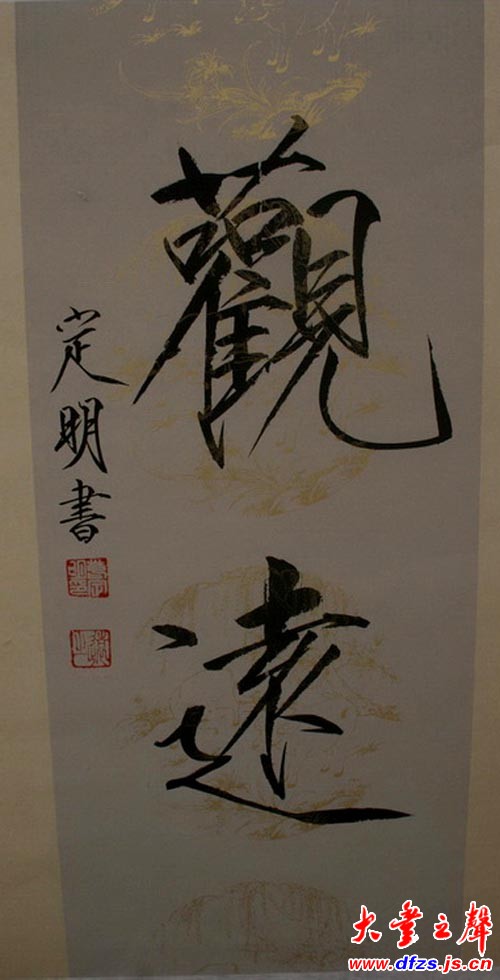 觀遠
定明書
大豐之聲
www.dfzs.js.cn